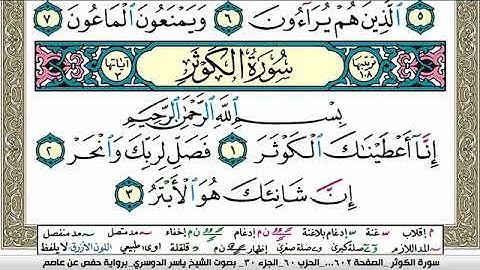 ٥ ٱلَّذِينَ هُمْ يُرَآءُونَ ٦ وَيَمْنَعُونَ ٱلْمَاعُونَ ٧
ترتيبها ١٠٨ سُورَةُ الكَوْثَر آياتها ٣
بِسْمِ ٱللَّهِ ٱلرَّحْمَٰنِ ٱلرَّحِيمِ
إِنَّآ أَعْطَيْنَٰكَ ٱلْكَوْثَرَ ١ فَصَلِّ لِرَبِّكَ وَٱنْحَرْ ٢
إِنَّ شَانِئَكَ هُوَ ٱلْأَبْتَرُ ٣
م إقلاب غنة إدغام بلاغنة ن م إدغام ن م إخفاء مد متصل مد منفصل
المد اللازم صلة كبرى و صلة صغرى إظهار ن م قلقلة ا و ى : طبيعي اللون الأزرق لا يلفظ
سورة الكوثر _ الصفحة ٦٠٢ ... الحزب ٦٠ _ الجزء ٣٠ _ بصوت الشيخ ياسر الدوسري _ برواية حفص عن عاصم